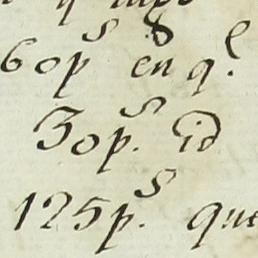 60p.s en q.e
30p.s id
125p.s que